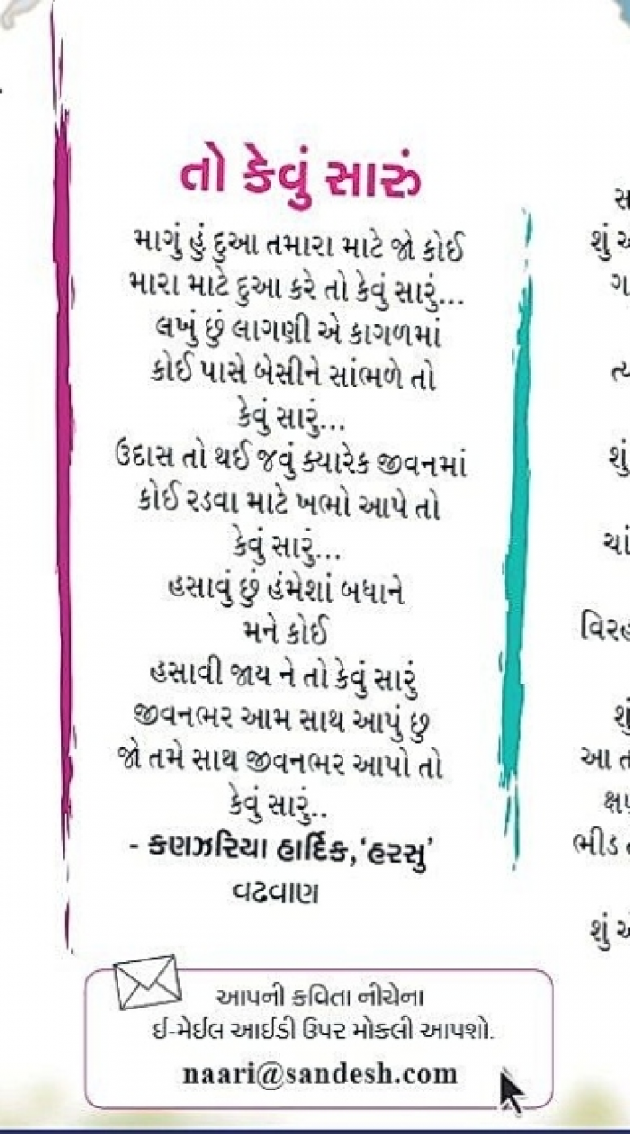 તો કેવું સારું
માગું હું દુઆ તમારા માટે જો કોઈ
મારા માટે દુઆ કરે તો કેવું સારું...
લખું છું લાગણી એ કાગળમાં
કોઈ પાસે બેસીને સાંભળે તો
કેવું સારું...
ઉદાસ તો થઈ જવું ક્યારેક જીવનમાં
કોઈ રડવા માટે ખભો આપે તો
કેવું સારું...
હસાવું છું હંમેશાં બધાને
મને કોઈ
હસાવી જાય ને તો કેવું સારું
જીવનભર આમ સાથ આપું છુ
જો તમે સાથ જીવનભર આપો તો
કેવું સારું..
- કણઝરિયા હાર્દિક,‘હરસુ’
વઢવાણ
આપની કવિતા નીચેના
ઈ-મેઈલ આઈડી ઉપર મોકલી આપશો.
naari@sandesh.com
શું
શું
ચાં
શું
આ ત
ભીડ
શું